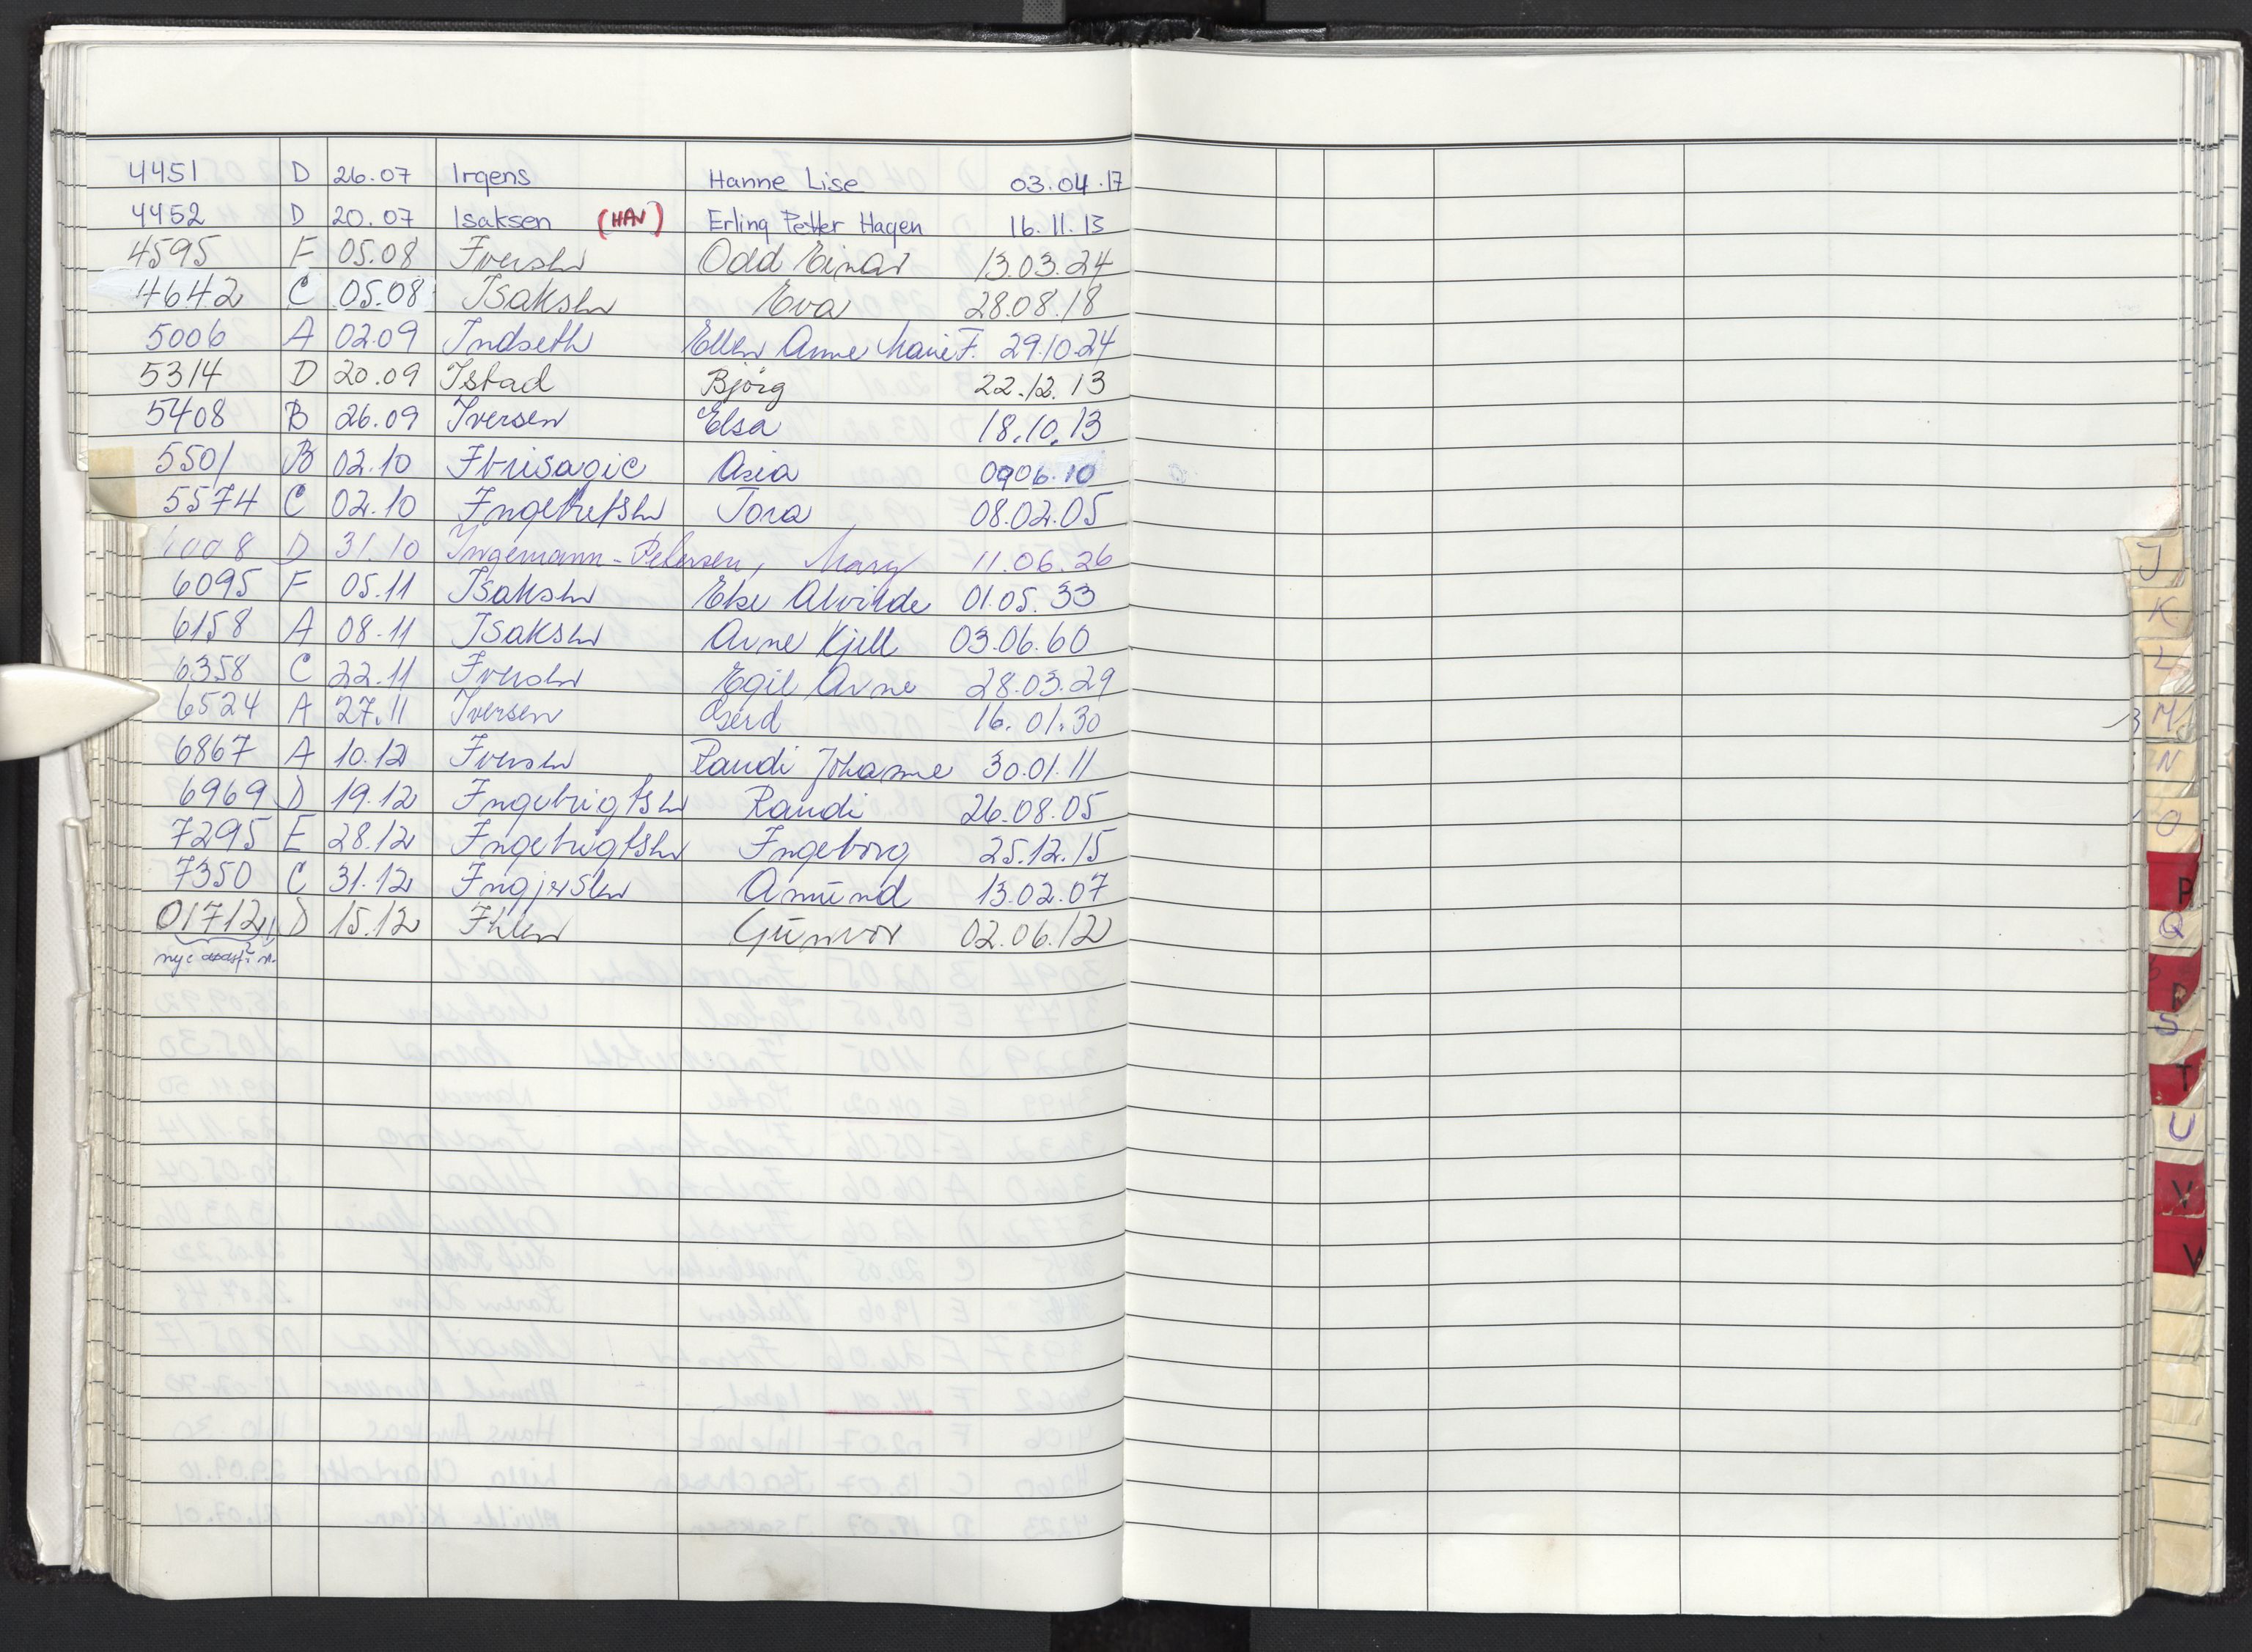 4451 D 26.07 Irgens Hanne Lise 03.04.17
4452 D 20.07 Isaksen (HAV) Erling Petter Hagen 16.11.13
4595 F 05.08 Iversen Odd Einar 13.03.24
4642 C 05.08 Isaksen Eva 28.08.18
5006 A 02.09 Indseth Ellen Anne Marie F. 29.10.24
5314 D 20.09 Istad Bjørg 22.12.13
5408 B 26.09 Iversen Elsa 18.10.13
5501 B 02.10 Ibrisagic Asia 0906.10
5574 C 02.10 Ingebretsen Tora 08.02.05
6008 D 31.10 Ingemann-Petersen, Mary 11.06.26
6095 F 05.11 Isaksen Else Alvilde 01.05.33
6158 A 08.11 Isaksen Arne Kjell 03.06.60
6358 C 22.11 Iversen Egil Arne 28.03.29
6524 A 27.11 Iversen Gerd 16.01.30
6867 A 10.12 Iversen Randi Johanne 30.01.11
6969 D 19.12 Ingebrigtsen Randi 26.08.05
7295 E 28.12 Ingebrigtsen Ingeborg 25.12.15
7350 C 31.12 Ingjersen Amund 13.02.07
01712 D 15.12 Ihlen Gunvor 02.06.12
nye
J
K
L
M
N
O
P
Q
R
S
T
U
V